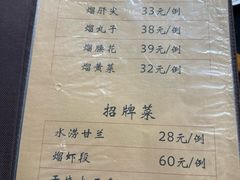 熘肝尖 33元/例
熘丸子 38元/例
熘腰花 39元/例
熘黄菜 32元/例
招牌菜
水涝甘兰 28元/例
熘虾段 60元/例